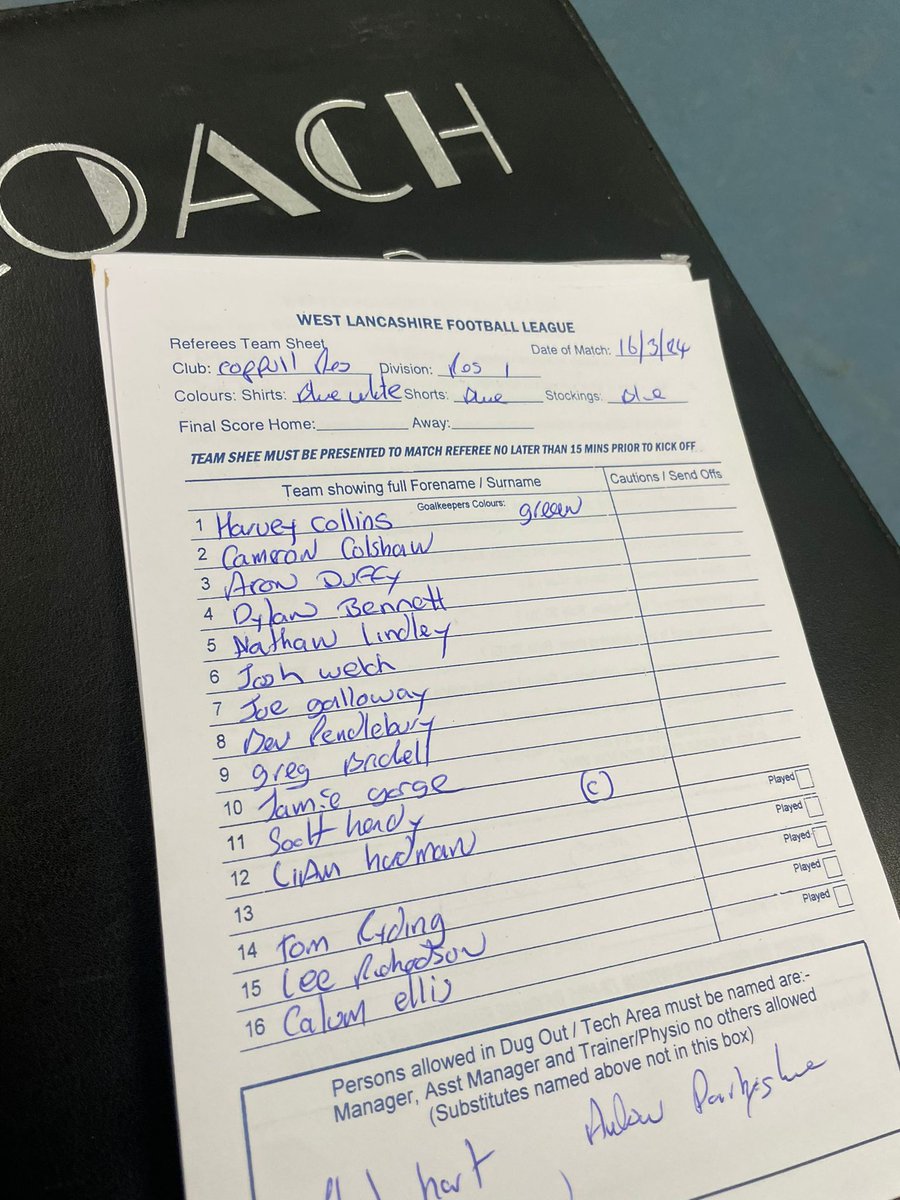 OACH
WEST LANCASHIRE FOOTBALL LEAGUE
Referees Team Sheet
Date of Match: 16/3/24
Club: coppull Res Division: Res 1
Colours: Shirts: Blue white Shorts: Blue Stockings: Blue
Final Score Home: Away:
TEAM SHEE MUST BE PRESENTED TO MATCH REFEREE NO LATER THAN 15 MINS PRIOR TO KICK OFF
Team showing full Forename / Surname Cautions / Send Offs
1 Harvey Collins Goalkeepers Colours: green
2 Cameron Colshaw
3 Aron Duffy
4 Dylan Bennett
5 Nathan Lindley
6 Josh welch
7 Joe galloway
8 Dev Pendlebury
9 greg
10 Jamie george
11 Scott hendy (C)
12 Liam hodman Played
13 Played
14 Tom Ryding Played
15 Lee Richardson Played
16 Calum ellis Played
Persons allowed in Dug Out / Tech Area must be named are:-
Manager, Asst Manager and Trainer/Physio no others allowed
(Substitutes named above not in this box)
hart